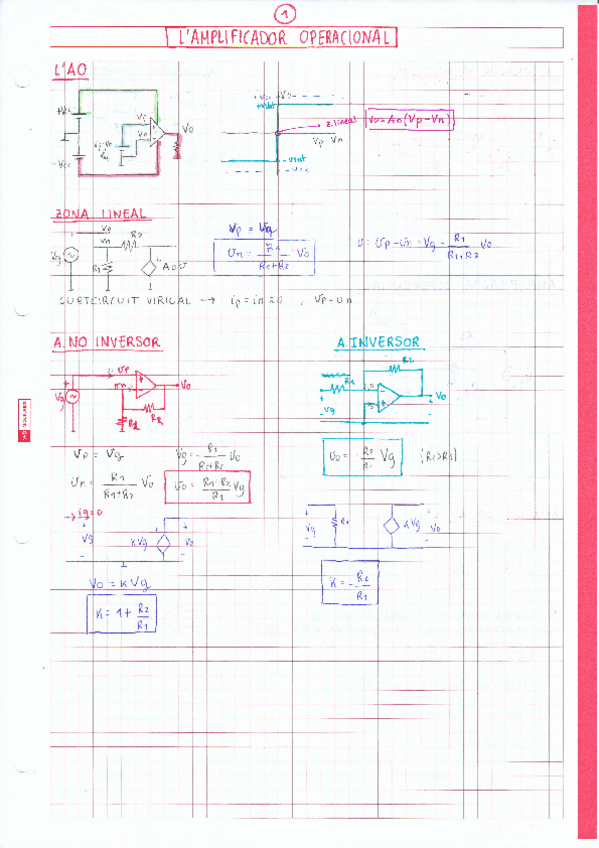 1
L'AMPLIFICADOR OPERACIONAL
L'AO
+Vcc
Vp
Vn
Vo
-Vcc
+Vcc
Vo
+Vsat
z. lineal
Vo = Ao(Vp-Vn)
Vp Vn
-Vsat
-Vcc
ZONA LINEAL
Vp
Vn
R2
Vg
R1
Ao v
Vp = Vg
Vn = R1/(R1+R2) Vo
v = Vp - Vn = Vg - R1/(R1+R2) Vo
CURTCIRCUIT VIRTUAL → ip = in = 0 , Vp = Vn
A. NO INVERSOR
Vp
Vn
Vo
Vg
R2
R1
Vp = Vg
Vg = R1/(R1+R2) Vo
Vn = R1/(R1+R2) Vo
Vo = (R1+R2)/R1 Vg
→ ig=0
Vg
KVg
Vo
Vo = KVg
K = 1 + R2/R1
A. INVERSOR
R2
R1
Vg
Vo
Vo = -R2/R1 Vg
(R2>R1)
Vg
R1
KVg
Vo
K = -R2/R1